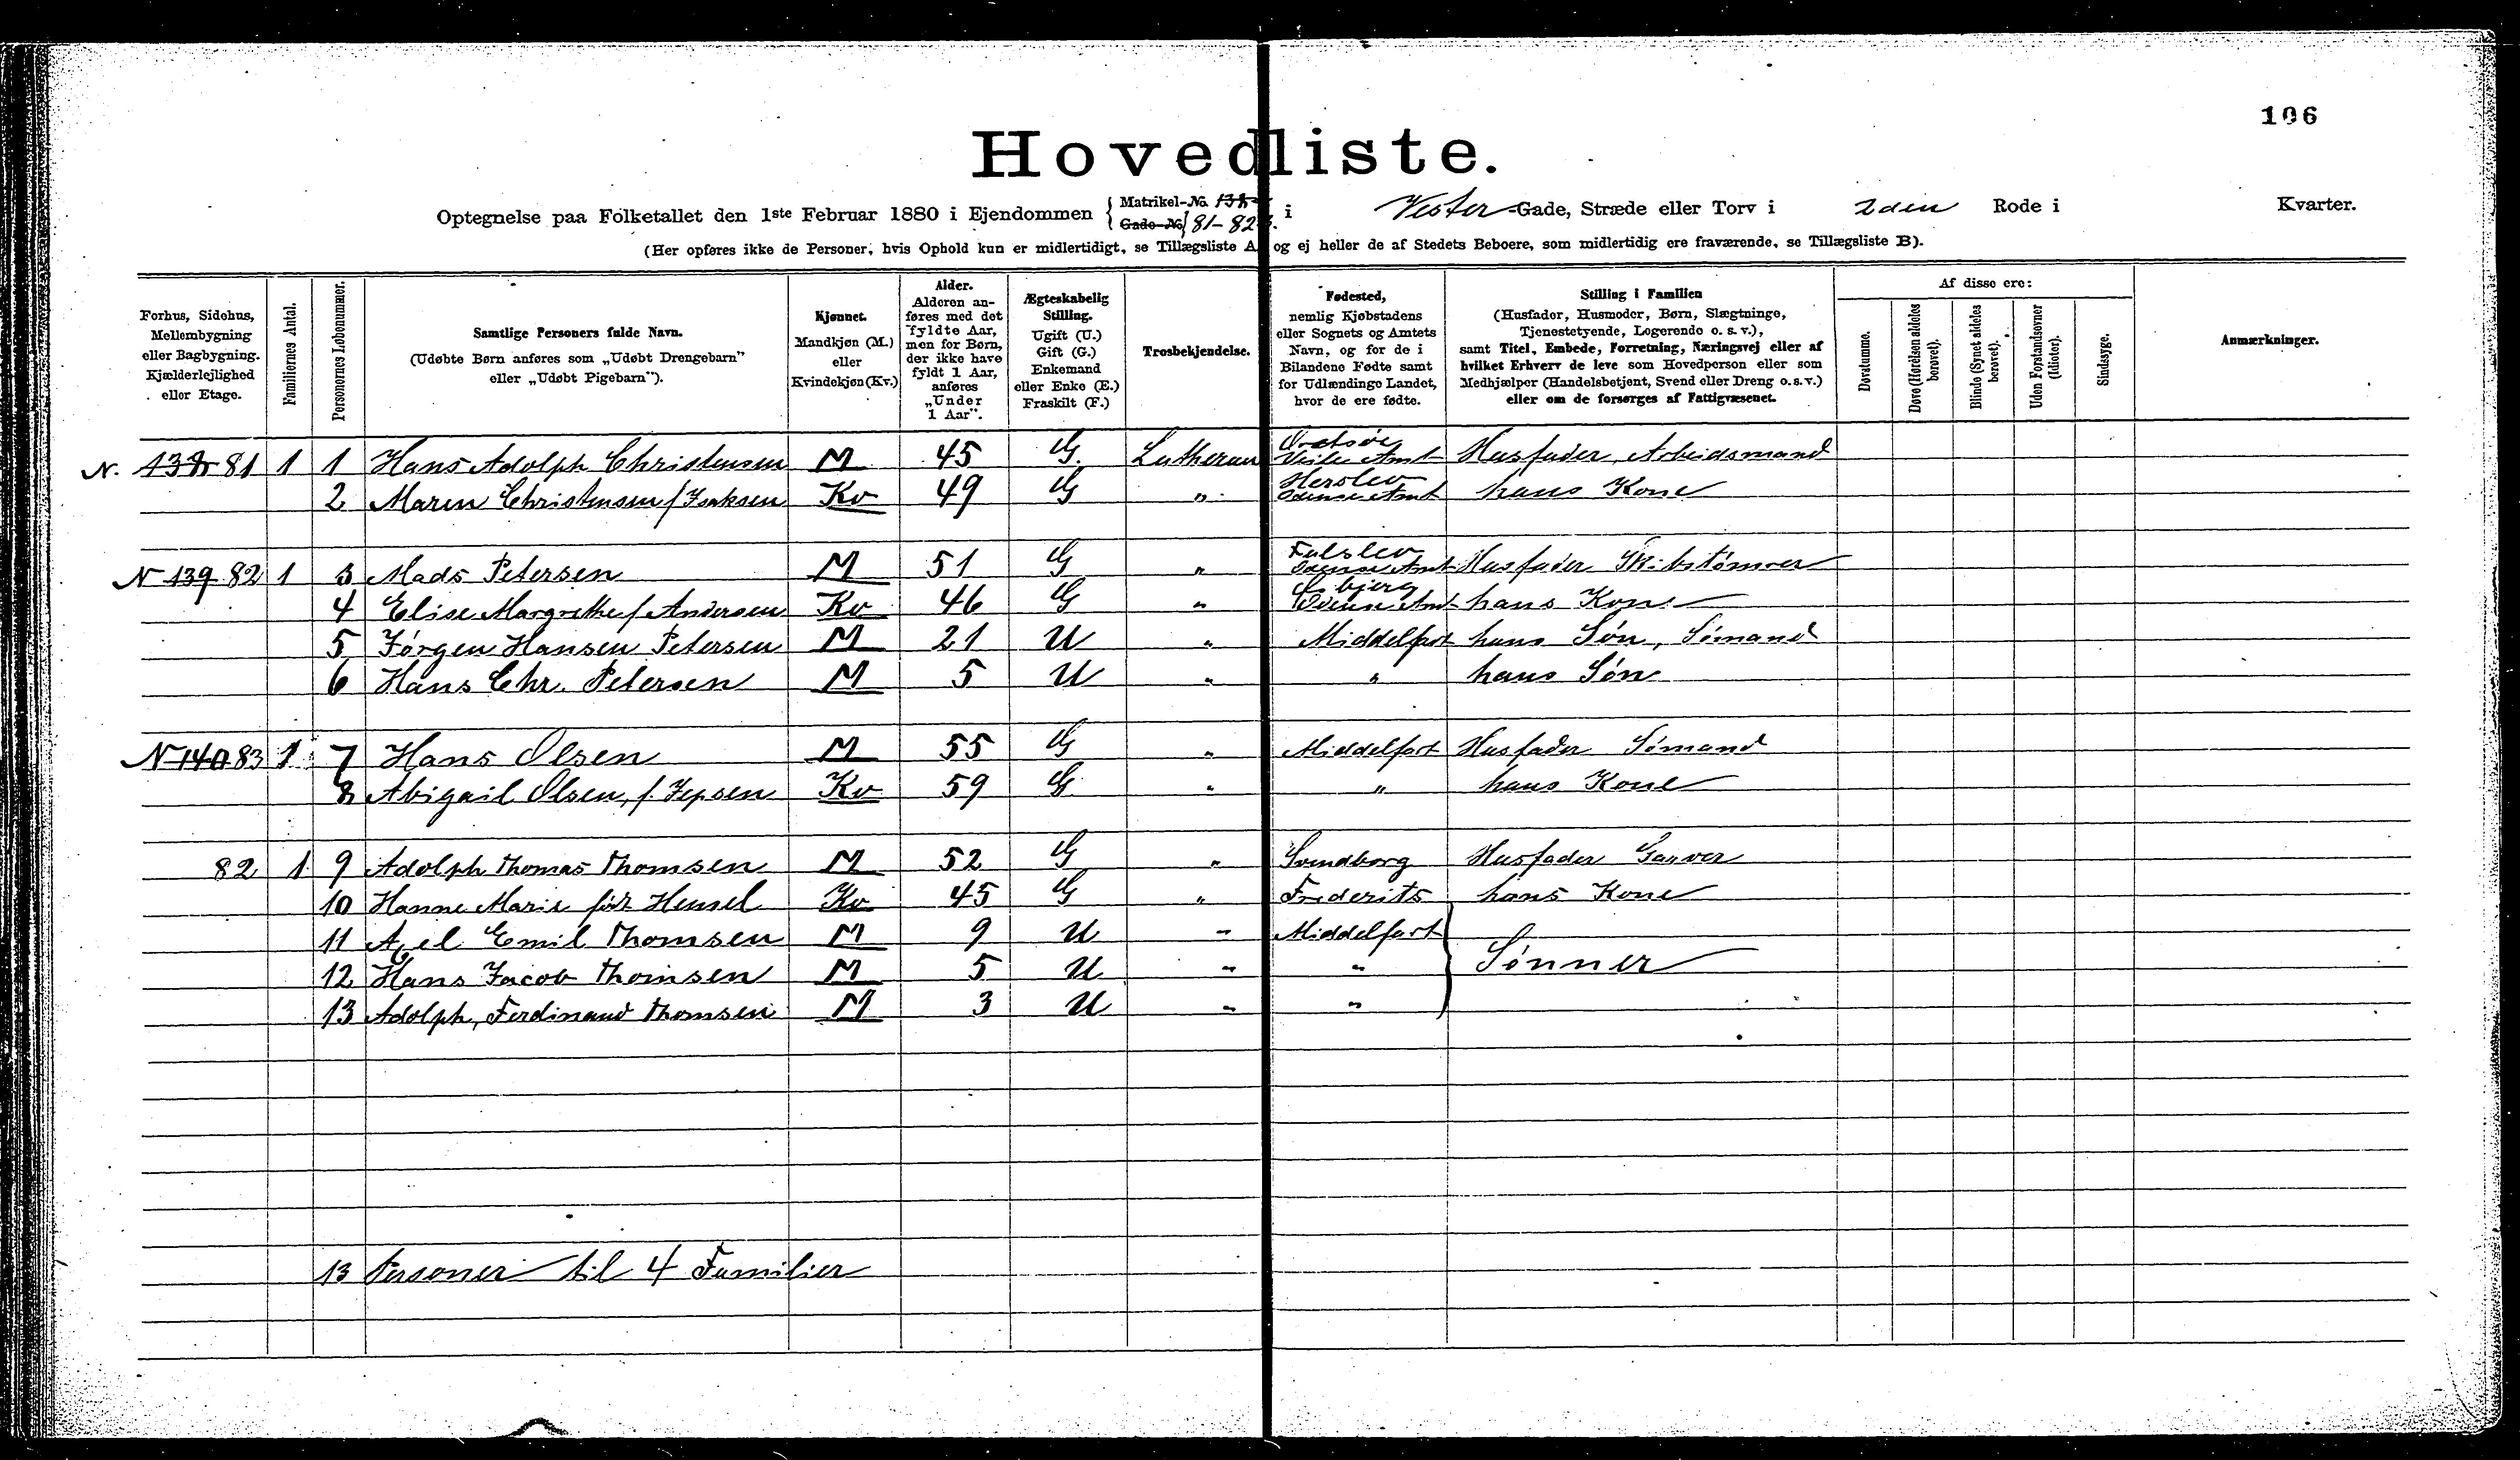 106
Hovedliste.
Optegnelse paa Folketallet den 1ste Februar 1880 i Ejendommen { Matrikel-No. 138 Gade-No. 81-82 i Vester-Gade, Stræde eller Torv i 2den Rode i Kvarter.
(Her opføres ikke de Personer, hvis Ophold kun er midlertidigt, se Tillægsliste A og ej heller de af Stedets Beboere, som midlertidig ere fraværende, se Tillægsliste B).
Forhus, Sidehus, Mellembygning eller Bagbygning. Kjælderlejlighed eller Etage.
Familiernes Antal.
Personernes Løbenummer.
Samtlige Personers fulde Navn.
(Udøbte Børn anføres som „Udøbt Drengebarn" eller „Udøbt Pigebarn").
Kjønnet. Mandkjøn (M.) eller Kvindekjøn (Kv.)
Alder. Alderen anføres med det fyldte Aar, men for Børn, der ikke have fyldt 1 Aar, anføres „Under 1 Aar".
Ægteskabelig Stilling. Ugift (U.) Gift (G.) Enkemand eller Enke (E.) Fraskilt (F.)
Trosbekjendelse.
Fødested, nemlig Kjøbstadens eller Sognets og Amtets Navn, og for de i Bilandene Fødte samt for Udlændinge Landet, hvor de ere fødte.
Stilling i Familien (Husfader, Husmoder, Børn, Slægtninge, Tjenestetyende, Logerende o. s. v.), samt Titel, Embede, Forretning, Næringsvej eller af hvilket Erhverv de leve som Hovedperson eller som Medhjælper (Handelsbetjent, Svend eller Dreng o.s.v.) eller om de forsørges af Fattigvæsenet.
Af disse ere:
Døvstumme.
Døve (Hørelsen aldeles berøvet).
Blinde (Synet aldeles berøvet).
Uden Forstandsevner (Idioter).
Sindssyge.
Anmærkninger.
N. 138 81 1 1 Hans Adolph Christensen M 45 G. Lutheran Veile Amt Husfader, Arbeidsmand
2 Maren Christensen f. Isaksen Kv 49 G " Herslev Odense Amt hans Kone
N 139 82 1 3 Mads Petersen M 51 G " Odense Amt Husfader Skibstømrer
4 Elise Margrethe f. Andersen Kv 46 G " Odense Amt hans Kone
5 Jørgen Hansen Petersen M 21 U " Middelfart hans Søn, Sømand
6 Hans Chr. Petersen M 5 U " " hans Søn
N 140 83 1 7 Hans Olsen M 55 G " Middelfart Husfader Sømand
8 Abigail Olsen, f. Jepsen Kv 59 G " " hans Kone
82 1 9 Adolph Thomas Thomsen M 52 G " Svendborg Husfader Garver
10 Hanne Marie født Hensel Kv 45 G " Frederits hans Kone
11 Axel Emil Thomsen M 9 U " Middelfart
12 Hans Jacob Thomsen M 5 U " " Sønner
13 Adolph, Ferdinand Thomsen M 3 U " "
13 Personer til 4 Familier